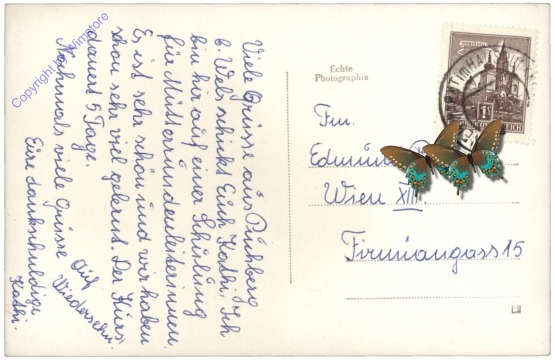 Viele Grüsse aus Puchberg
b. Wels schickt Euch Kathi. Ich
bin hir auf einer Schulung
für Mütterrundenleiterinnen.
Es ist sehr schön und wir haben
schon sehr viel gelernt. Der Kurs
dauert 5 Tage.
Nochmals viele Grüsse
Auf
Wiedersehn.
Eure dankschuldige
Kathi.
Echte
Photographie
Fm.
Wien XIII.
Firmiangass 15
Copyright by Wimstore